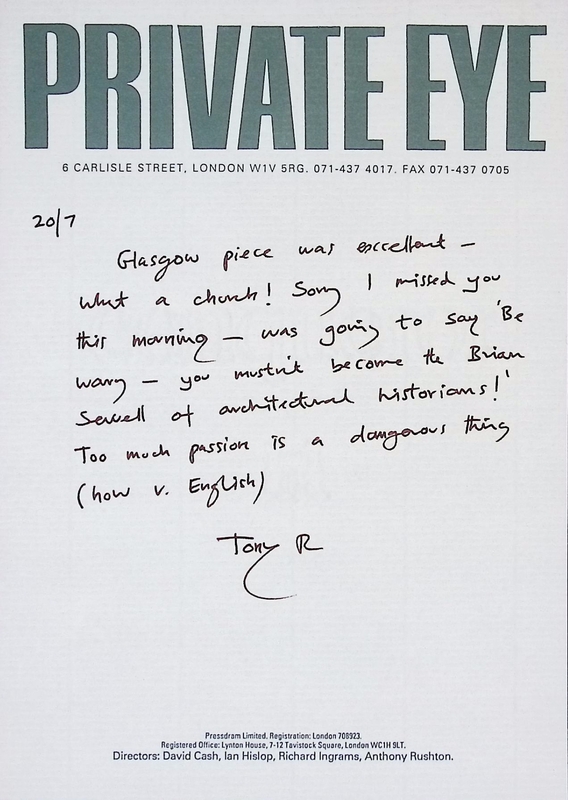 PRIVATE EYE
6 CARLISLE STREET, LONDON W1V 5RG. 071-437 4017. FAX 071-437 0705
20/7
Glasgow piece was excellent –
what a church! Sorry I missed you
this morning – was going to say 'Be
wary – you mustn't become the Brian
Sewell of architectural historians!'
Too much passion is a dangerous thing
(how v. English)
Tony R
Pressdram Limited, Registration: London 708923.
Registered Office: Lynton House, 7-12 Tavistock Square, London WC1H 9LT.
Directors: David Cash, Ian Hislop, Richard Ingrams, Anthony Rushton.